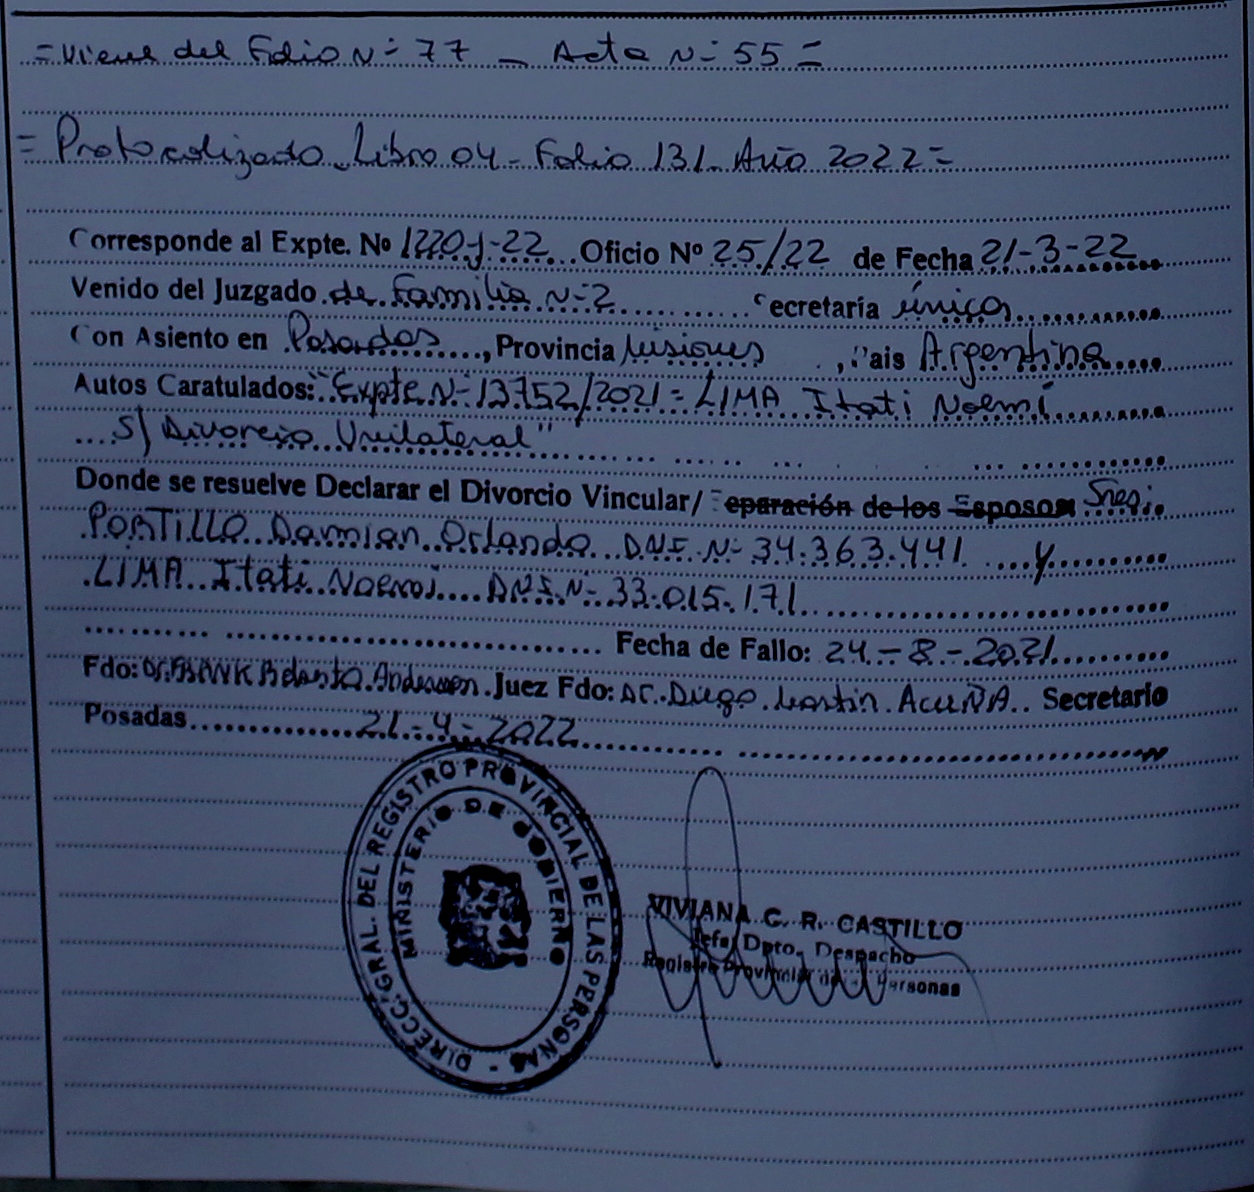 = Viene del Folio N- 77 _ Acta N- 55 =
= Protocolizado Libro 04 - Folio 131 Año 2022 =
Corresponde al Expte. Nº 1220-J-22 Oficio Nº 25/22 de Fecha 21-3-22
Venido del Juzgado de Familia N-2 Secretaría única
Con Asiento en Posadas, Provincia Misiones, Pais Argentina
Autos Caratulados: "Expte N- 13752/2021 = LIMA Itati Noemí
S/ Divorcio Unilateral"
Donde se resuelve Declarar el Divorcio Vincular/ Separación de los Esposos Sres:
PORTILLO Damian Orlando D.N.I. N- 34.363.441 y
LIMA Itati Noemi D.N.I. N- 33.015.171
Fecha de Fallo: 24-8-2021
Fdo: Dr. Andersen Juez Fdo: Dr. Diego Martin ACUÑA Secretario
Posadas 21-4-2022
DIRECC. GRAL. DEL REGISTRO PROVINCIAL DE LAS PERSONAS -
MINISTERIO DE GOBIERNO
VIVIANA C. R. CASTILLO
Jefa Dpto. Despacho
Registro Provincial de Personas